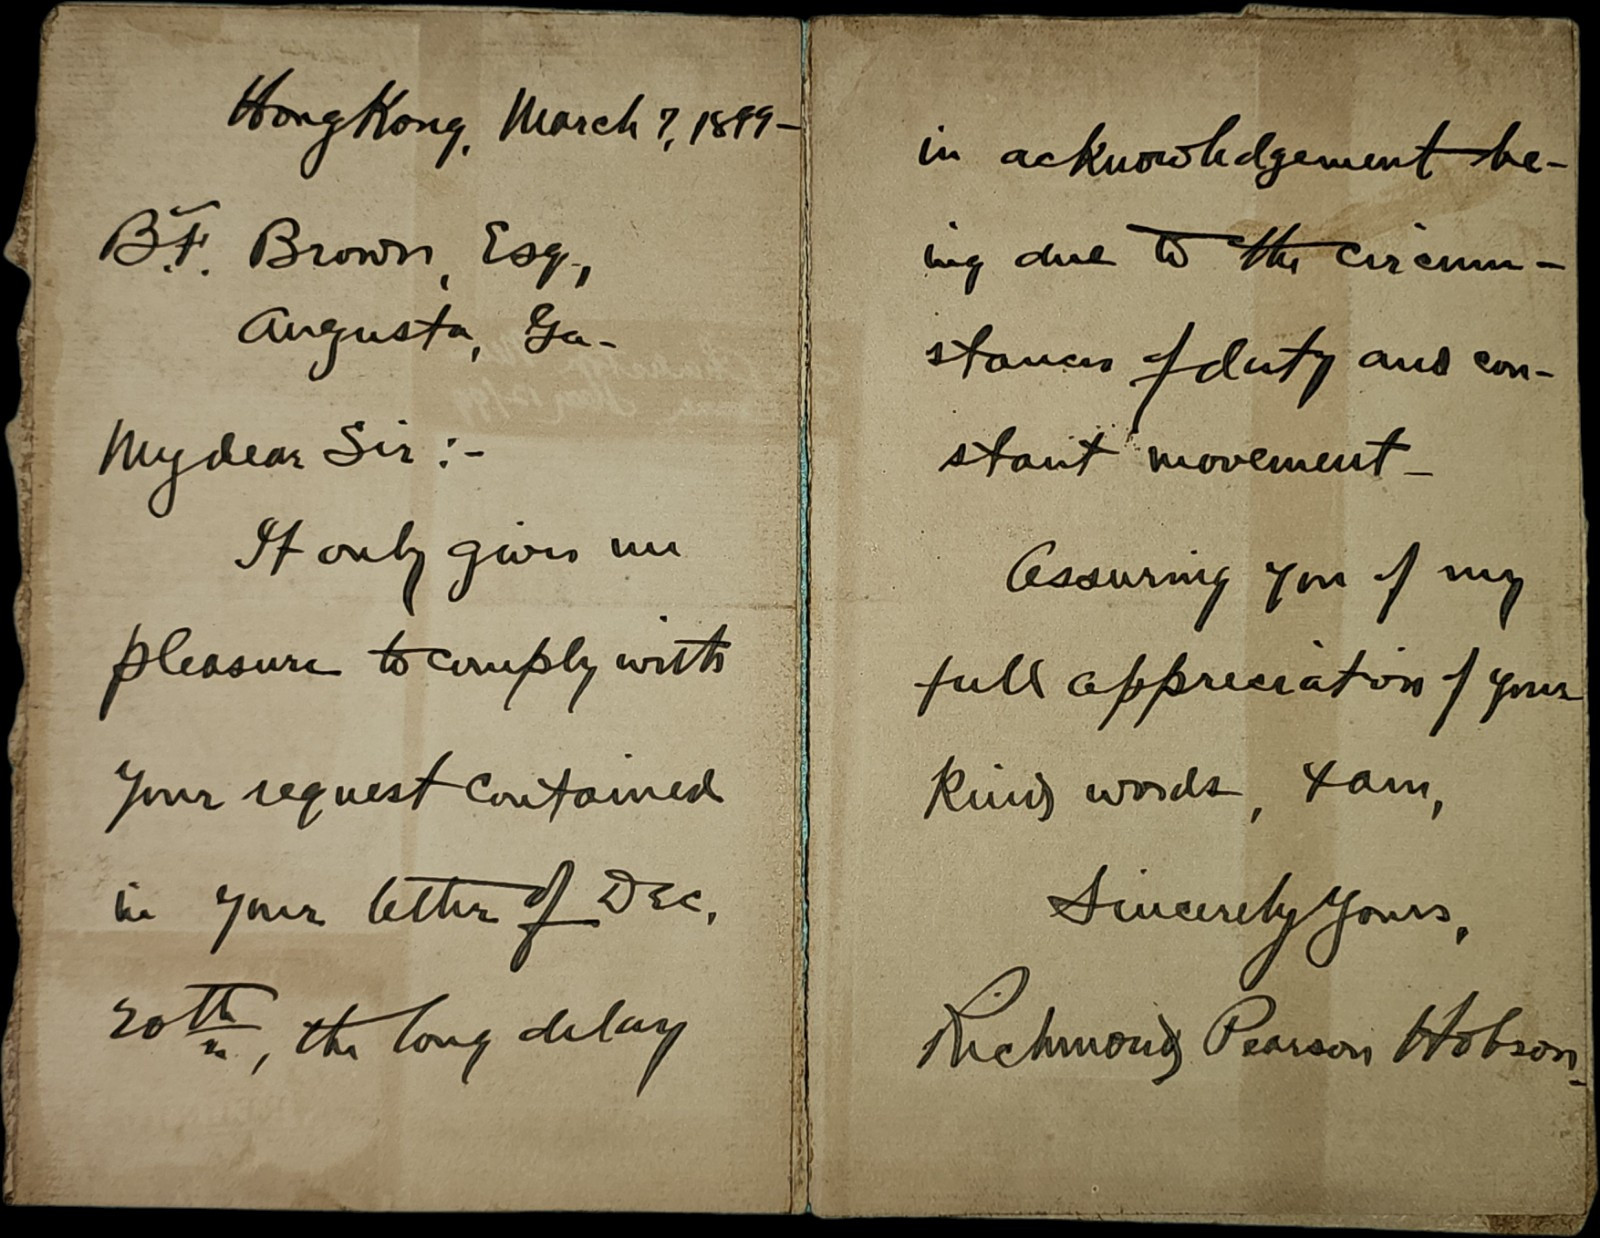 Hong Kong, March 7, 1899-
B.F. Brown, Esq.,
Augusta, Ga-
My dear Sir :-
It only gives me
pleasure to comply with
your request contained
in your letter of Dec.
20th, the long delay
in acknowledgement be-
ing due to the circum-
stances of duty and con-
stant movement-
Assuring you of my
full appreciation of your
kind words, I am,
Sincerely Yours,
Richmond Pearson Hobson-